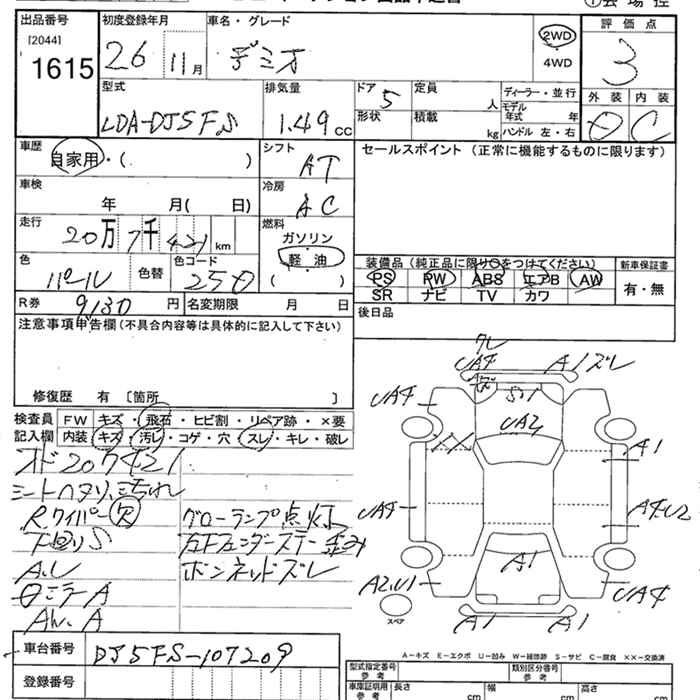 出品番号 初度登録年月 車名・グレード 評価点
[2044] 1615 26 11月 デミオ 2WD 4WD 3
外装 内装
型式 排気量 ドア 定員 ディーラー・並行
LDA-DJ5FS 1.49cc 5 人 モデル年式 年
形状 積載 kg ハンドル 左・右 C
車歴 シフト セールスポイント(正常に機能するものに限ります)
自家用・( ) AT
車検 冷房
年 月( 日) AC
走行 燃料
20万7千421km ガソリン
色 色替 色コード 軽・油 装備品(純正品に限り○をつけてください) 新車保証書
パール 25D ( ) PS PW ABS エアB AW 有・無
SR ナビ TV カワ
R券 9130円 名変期限 月 日 後日品
注意事項申告欄(不具合内容等は具体的に記入して下さい)
修復歴 有 [箇所 ]
検査員 FW キズ・飛石・ヒビ割・リペア跡・×要
記入欄 内装 キズ・汚レ・コゲ・穴・スレ・キレ・破レ
オド207421
シートヘタリ、汚れ
Rワイパー欠 グローランプ点灯
下回りS 左Fフェンダーステー歪み
A.U ボンネットズレ
ミラーA
AW.A
ワレ
UA4 A1ズレ
UA4 キズ S1
UA2
XX A1
UA4 A4U2
A1
A2U1 UA4
スペア A1 A1
車台番号 DJ5FS-107209
登録番号
A-キズ E-エクボ U-凹み W-補修跡 S-サビ C-腐食 ××-交換済
型式指定番号 参考 類別区分番号 参考
車庫証明用 参考 長さ cm 幅 cm 高さ cm